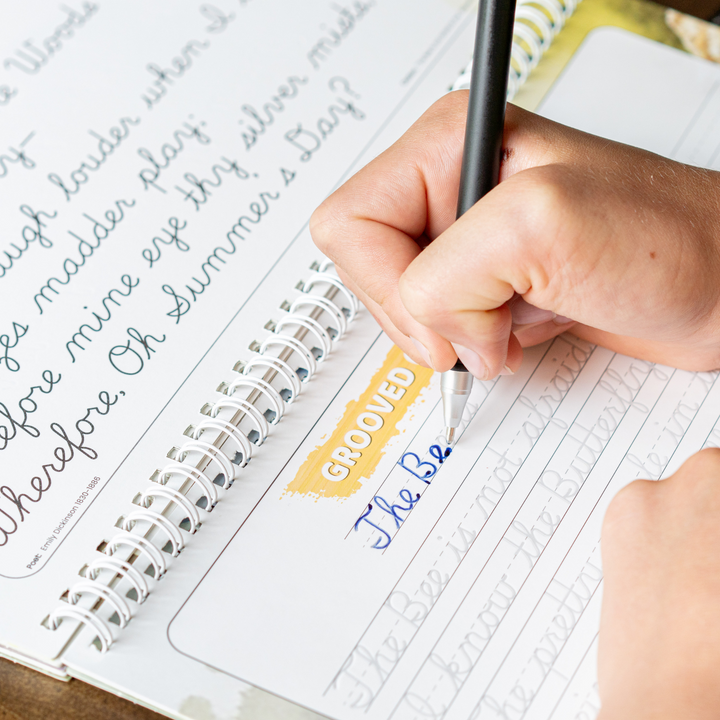 e Woods
y—
laugh louder when I
es madder play:
efore mine eye thy silver miste
Wherefore, Oh Summer's Day?
Poet: Emily Dickinson 1830-1886
GROOVED
The Bee
The Bee is not afraid
I know the Butterfly
The pretty